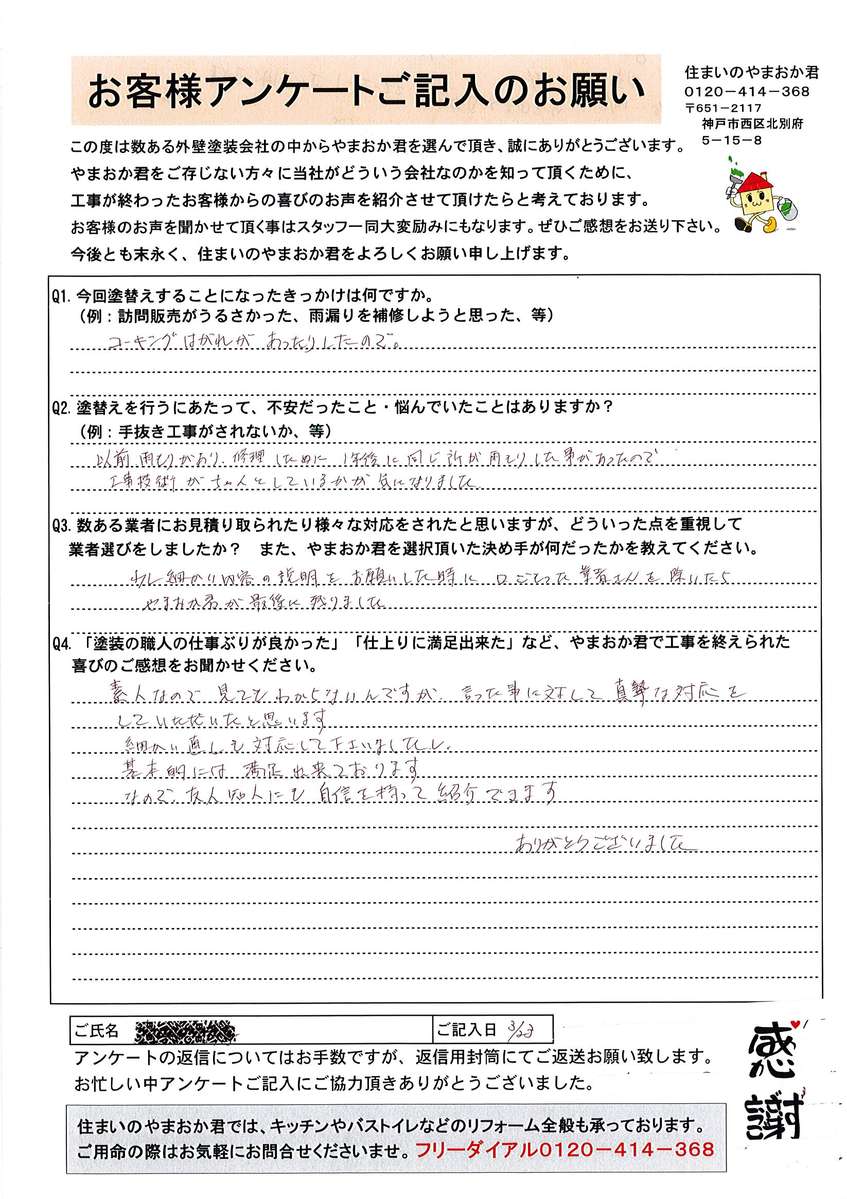 お客様アンケートご記入のお願い
住まいのやまおか君
0120-414-368
〒651-2117
神戸市西区北別府
5-15-8
この度は数ある外壁塗装会社の中からやまおか君を選んで頂き、誠にありがとうございます。
やまおか君をご存じない方々に当社がどういう会社なのかを知って頂くために、
工事が終わったお客様からの喜びのお声を紹介させて頂けたらと考えております。
お客様のお声を聞かせて頂く事はスタッフ一同大変励みにもなります。ぜひご感想をお送り下さい。
今後とも末永く、住まいのやまおか君をよろしくお願い申し上げます。
Q1. 今回塗替えすることになったきっかけは何ですか。
（例：訪問販売がうるさかった、雨漏りを補修しようと思った、等）
コーキングはがれがあったりしたので。
Q2. 塗替えを行うにあたって、不安だったこと・悩んでいたことはありますか？
（例：手抜き工事がされないか、等）
以前雨もりがあり、修理したのに1年後に同じ所が雨もりした事があったので
工事技術がちゃんとしているかが気になりました
Q3. 数ある業者にお見積り取られたり様々な対応をされたと思いますが、どういった点を重視して
業者選びをしましたか？ また、やまおか君を選択頂いた決め手が何だったかを教えてください。
少し細かい内容の説明をお願いした時に口ごもった業者さんを除いたら
やまおか君が最後に残りました
Q4. 「塗装の職人の仕事ぶりが良かった」「仕上りに満足出来た」など、やまおか君で工事を終えられた
喜びのご感想をお聞かせください。
素人なので見てもわからないんですが、言った事に対して真摯な対応を
していただいたと思います
細かい直しも対応して下さいましたし、
基本的には満足出来ております
なので、友人知人にも自信を持って紹介できます
ありがとうございました
ご氏名
ご記入日 3/23
アンケートの返信についてはお手数ですが、返信用封筒にてご返送お願い致します。
お忙しい中アンケートご記入にご協力頂きありがとうございました。
感謝
住まいのやまおか君では、キッチンやバストイレなどのリフォーム全般も承っております。
ご用命の際はお気軽にお問合せくださいませ。フリーダイアル0120-414-368